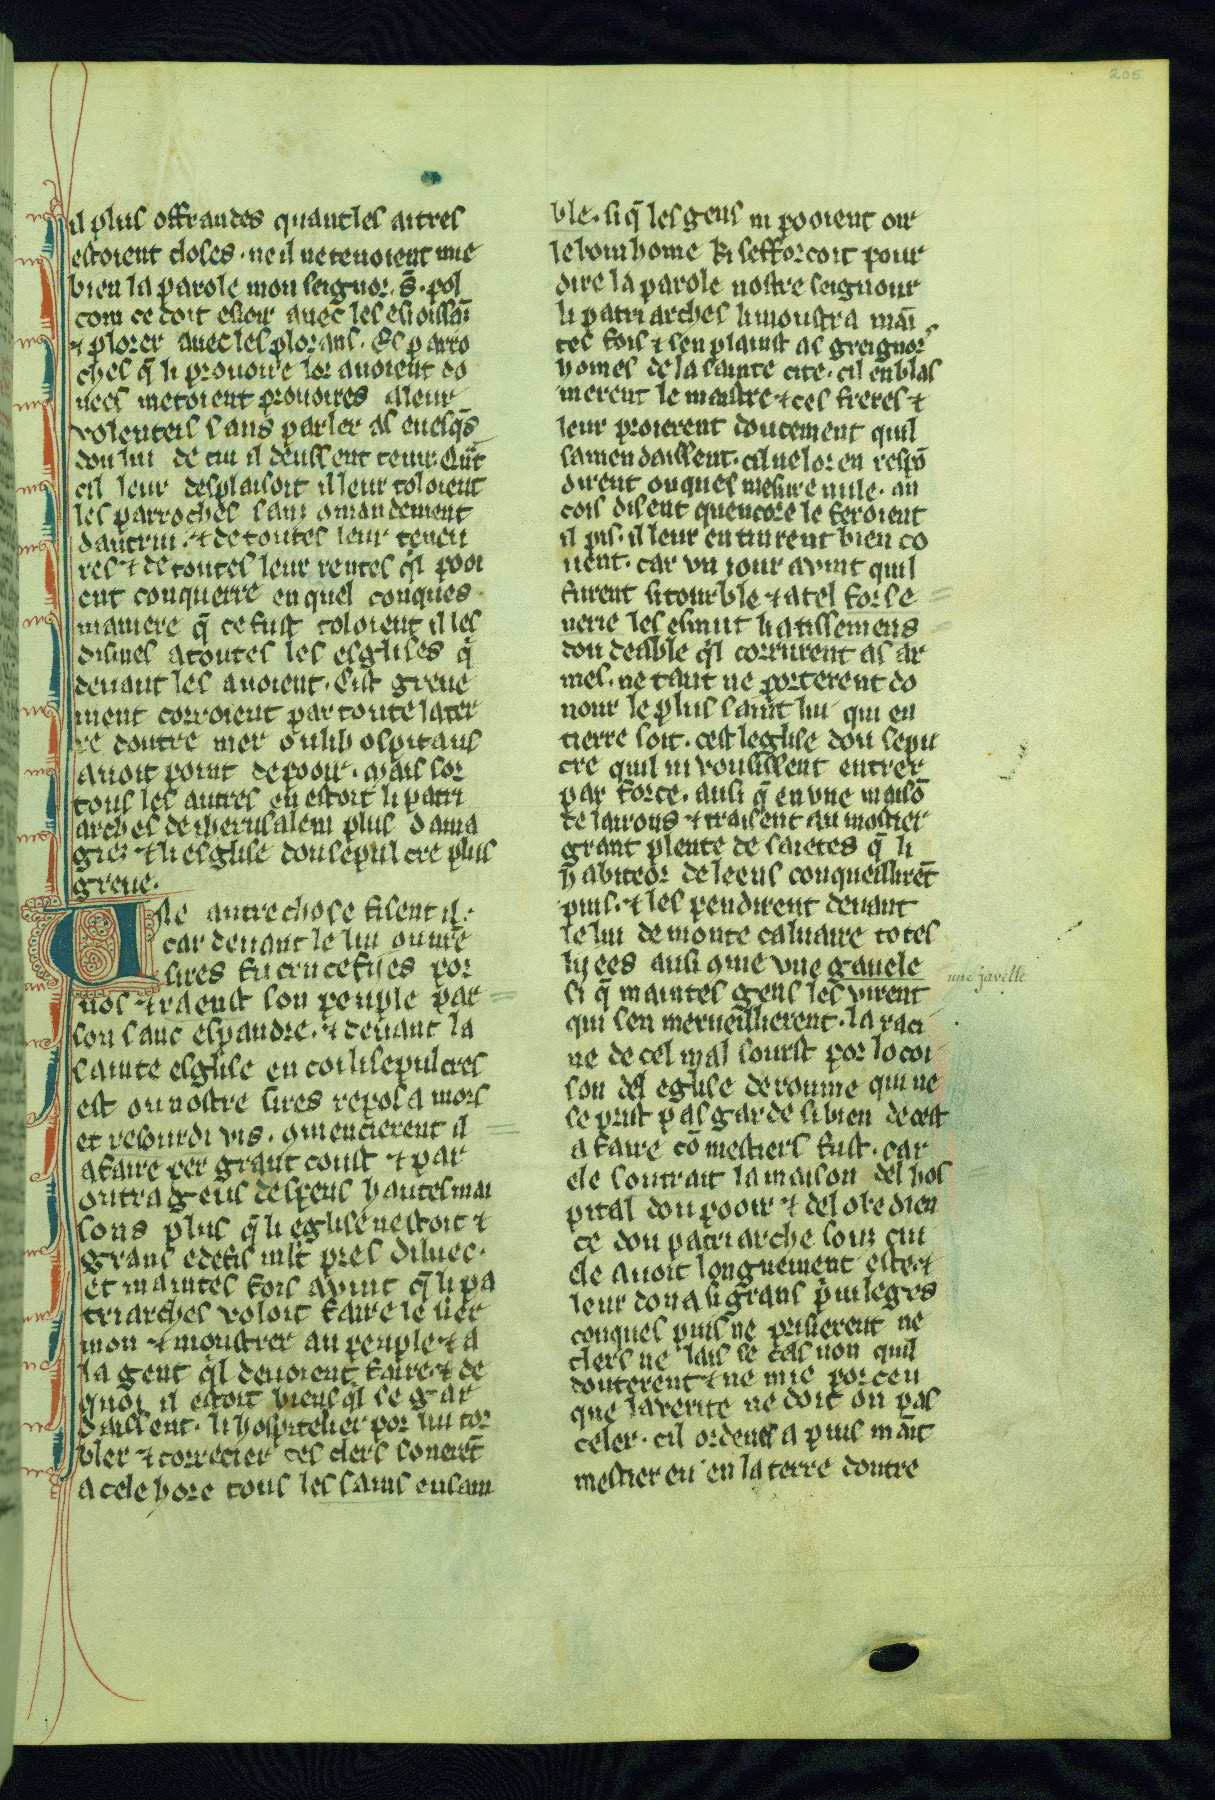 205
il plus offrandes quant les autres
estoient closes · ne il ne tenoient mie
bien la parole mon seignor · s̄ · pol
com ce doit esioir auec̄ les esioissāz
⁊ plorer auec les plorans · Es parro
ches q̄ li prouoire lor auoient do
nees metoient prouoires a leur
volenteis sans parler as euesq̄s
dou lui de cui il deussent tenir · Quāt
cil leur desplaisoit il leur toloient
les parroches sanz 9mandement
dautrui · ⁊ de toutes leur teneu
res ⁊ de toutes leur rentes q̄l pooi
ent conquerre en quel conques
maniere q̄ ce fust toloient il les
dismes a toutes les esglises q̄
deuant les auoient · Cist greue
ment corroient par toute la ter
re doutre mer ou li hospitaus
auoit point de pooir · mais sor
tous les autres en estoit li patri
arches de iherusalem plus dama
giez ⁊ li esglise dou sepulcre plus
greue ·
Une autre chose fisent il ·
car deuant le liu ou nr̄e
sires fu crucefijes por
nos ⁊ raenst son peuple par
son sanc espandre · ⁊ deuant la
sainte esglise en coi li sepulcres
est ou nostre sires reposa mors
et resourdi vis · 9mencierent il
a faire per grant coust ⁊ par
outrageus despens hautes mai
sons plus q̄ li eglise nestoit ⁊
grans edefis mlt̄ pres diluec ·
et maintes fois auint q̄ li pa
triarches voloit faire le ser
mon ⁊ moustrer au peuple ⁊ a
la gent q̄l deuoient faire ⁊ de
quoi il estoit biens q̄l se gar
daissent · li hospitelier por lui tor
bler ⁊ correcier ces clers sonerēt
a cele hore tous les sains ensam
ble · si q̄ les gens ni pooient oir
le boin home ki sefforcoit pour
dire la parole nostre seignour
li patriarches li moustra main
tes fois ⁊ sen plainst as greignor
homes de la sainte cite · cil en blas
merent le maistre ⁊ ces freres ⁊
leur proierent doucement quil
samendaissent · cil ne lor en respō
dirent onques mesure nule · an
cois disent quencore le feroient
il pis · il leur en tinrent bien co
uent · car vn iour auint quil
furent si tourble ⁊ a tel forse
nerie les esmut li atissemens
dou deable q̄l corrurent as ar
mes · ne tant ne porterent do
nour le plus saint liu qui en
tierre soit · cest leglise dou sepu
cre quil ni vousissent entrer
par force · ausi q̄ en vne maisō
de larrons ⁊ traisent au mostier
grant plente de saietes q̄ li
habiteor de leens conqueillirēt
puis · ⁊ les pendirent deuant
le liu de monte caluaire totes
lyees ausi 9me vne gauele
si q̄ maintes gens les virent
une javelle
qui sen merueillierent · la raci
ne de cel mal sourst por locoi
son del eglise de roume qui ne
se prist pas garde si bien de cest
afaire cō mestiers fust · car
ele soutrait la maison del hos
pital dou pooir ⁊ del obedien
ce dou patriarche souz cui
ele auoit longuement este ⁊
leur dona si grans p̄uileges
conques puis ne prisierent ne
clers ne lais se ceus non quil
douterent ⁊ ne mie por ceu
que la verite ne doit on pas
celer · cil ordenes a puis maīt
mestier eu en la terre doutre